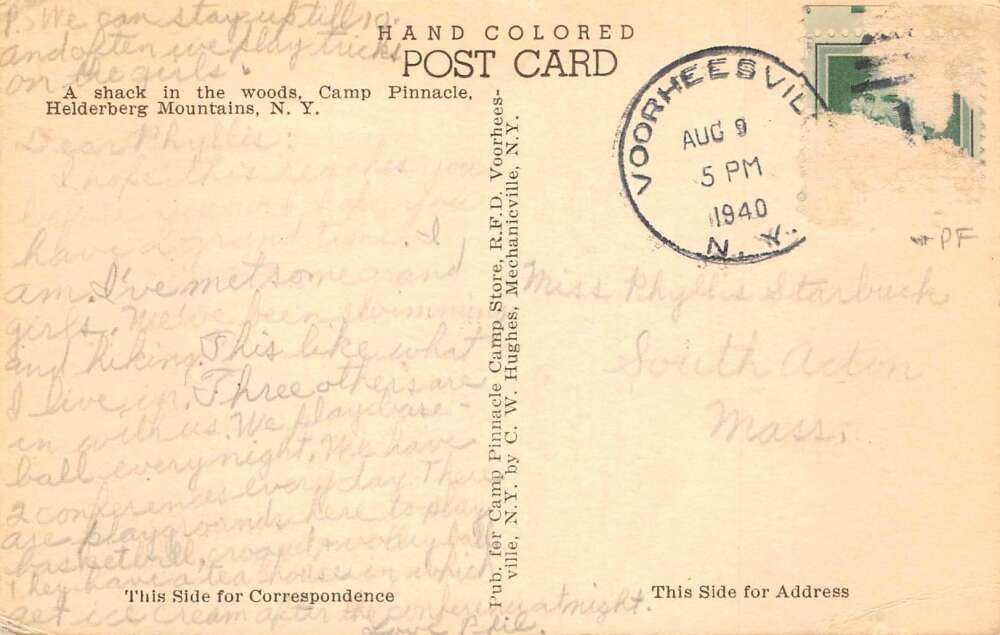 P.S. We can stay up till 10.
and often we play tricks
on the girls.
HAND COLORED
POST CARD
A shack in the woods, Camp Pinnacle,
Helderberg Mountains, N. Y.
Dear Phyllis:
I hope this reaches you
have a grand time. I
am. I've met some grand
girls. We've been swimming
and hiking. This like what
I live in. Three others are
in with us. We play base-
ball every night. We have
2 conferences everyday There
are playgrounds here to play
basketball, croquet, + volley ball
They have a tea house in which
get ice cream after the conference at night.
Love Phil.
This Side for Correspondence
Pub. for Camp Pinnacle Camp Store, R.F.D. Voorhees-
ville, N.Y. by C. W. Hughes, Mechanicville, N.Y.
VOORHEESVIL
AUG 9
5 PM
1940
N. Y.
PF
Miss Phyllis Starbuck
South Acton
Mass.
This Side for Address